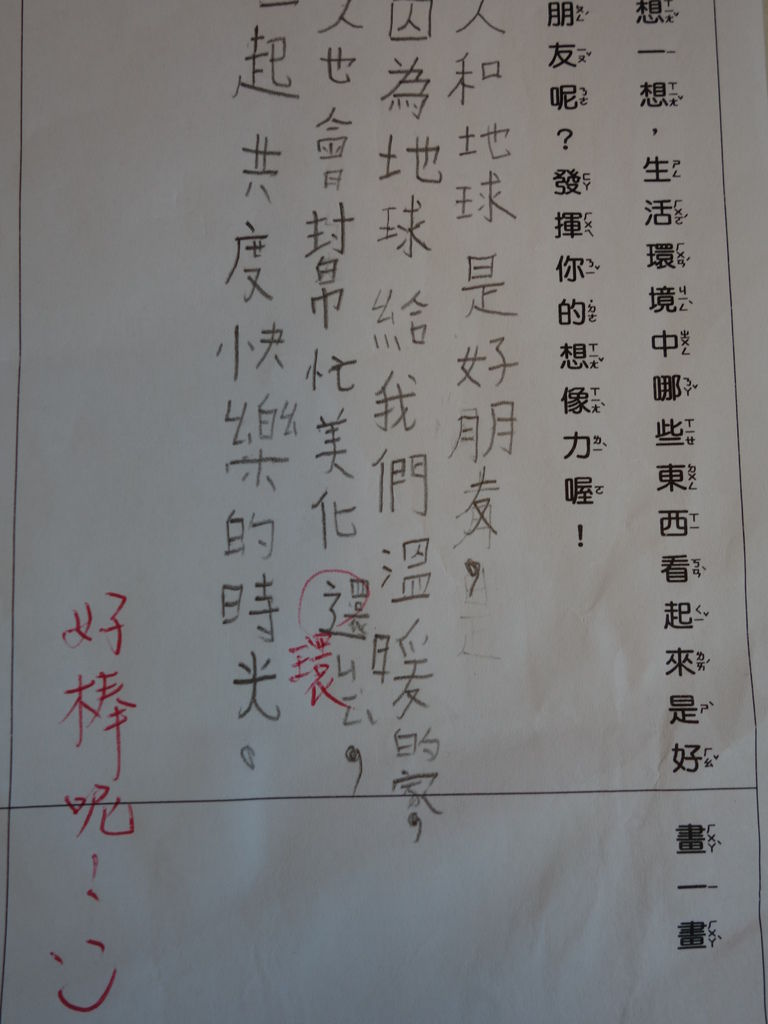 想一想，生活環境中哪些東西看起來是好
朋友呢？發揮你的想像力喔！
人和地球是好朋友，
因為地球給我們溫暖的家，
人也會幫忙美化還ㄐㄧㄥˋ，
環
一起共度快樂的時光。
好棒呢！
畫一畫